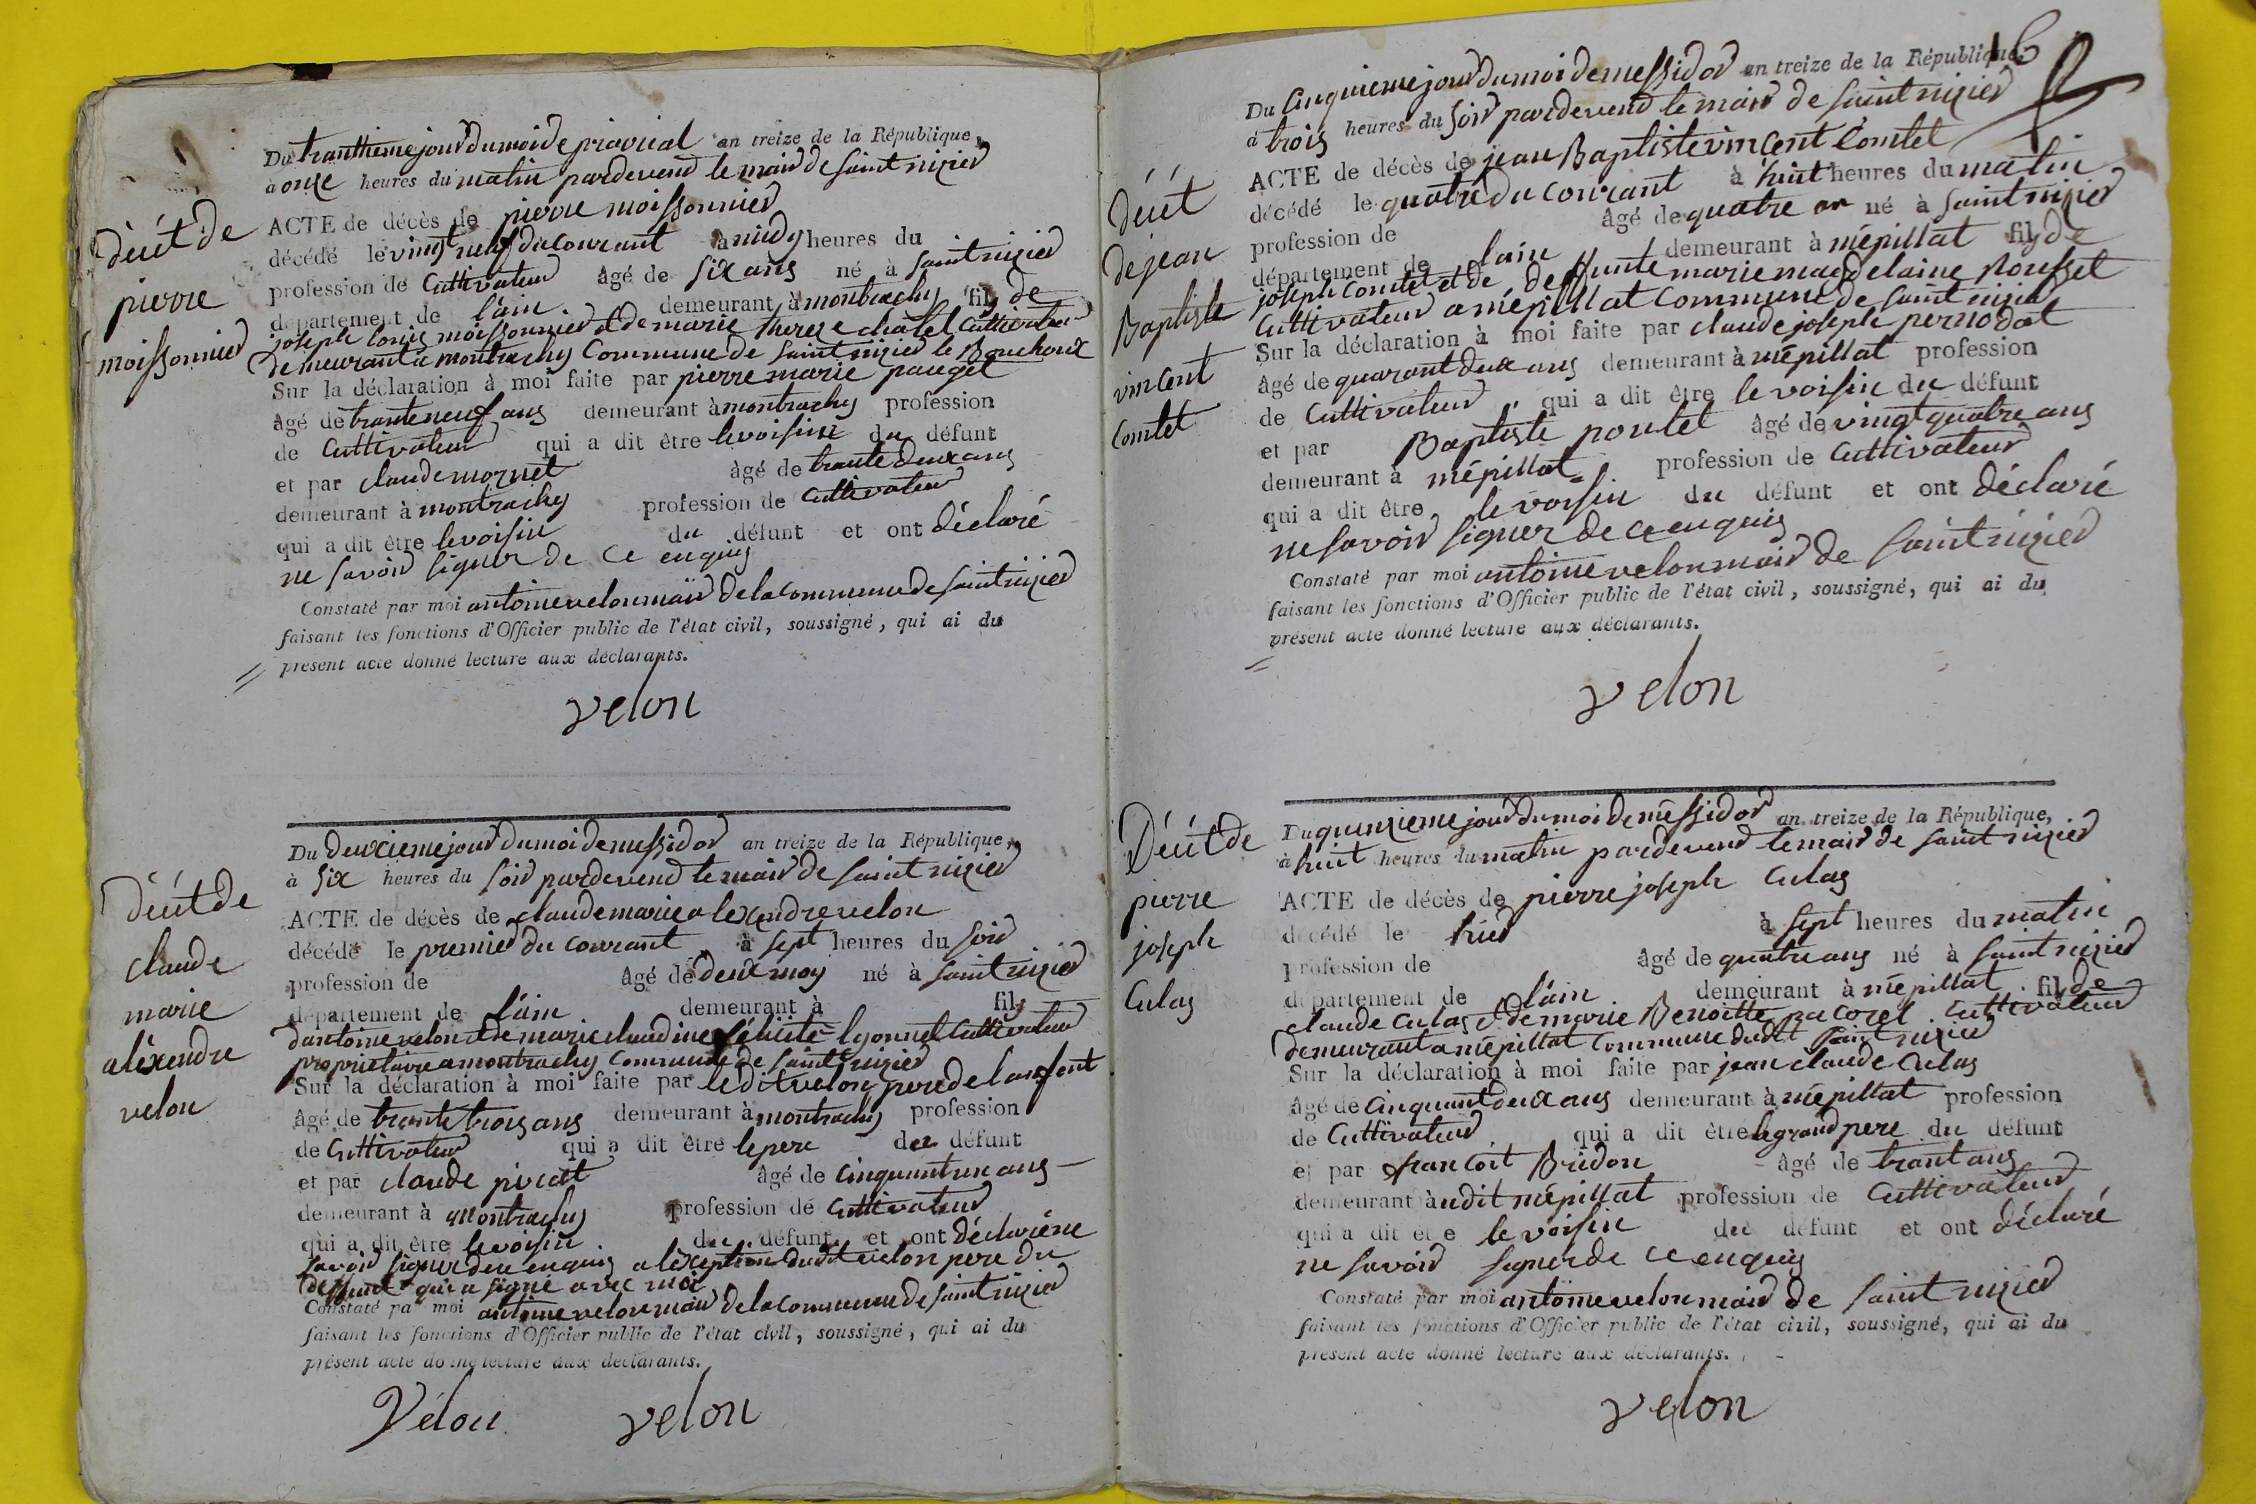 décét de
pierre
moissonnier
Du tranthieme jour du moi de prairial an treize de la République,
à onze heures du matin pardevend le maire de saint nizier
ACTE de décès de pierre moissonnier
décédé le vingt neuf du courant à midy heures du
profession de Cultivateur âgé de six ans né à saint nizier
département de l'ain demeurant à montrachy fils de
joseph louis moissonnier et de marie therese chatel Cultivateur
demeurant a montrachy Commune de saint nizier le Bouchoux
Sur la déclaration à moi faite par pierre marie pauget
âgé de trante neuf ans demeurant à montrachy profession
de Cultivateur qui a dit être le voisin du défunt
et par claude moznet âgé de trante deux ans
demeurant à montrachy profession de Cultivateur
qui a dit être le voisin du défunt et ont déclaré
ne savoir signer de ce enquis
Constaté par moi antoine velon maire de la commune de saint nizier
faisant les fonctions d'Officier public de l'état civil, soussigné, qui ai du
présent acte donné lecture aux déclarants.
velon
décét de
claude
marie
aléxendre
velon
Du deuxieme jour du moi de messidor an treize de la République,
à six heures du soir pardevend le maire de saint nizier
ACTE de décès de claude marie alexendre velon
décédé le premier du courant à sept heures du soir
profession de âgé de deux moy né à saint nizier
département de l'ain demeurant à fils
d'antoine velon et de marie claudine félicité lyonnel Cultivateur
propriétaire a montrachy commune de saint nizier
Sur la déclaration à moi faite par ledit velon pere de lanfent
âgé de trante trois ans demeurant à montrachy profession
de Cultivateur qui a dit être le pere du défunt
et par claude âgé de cinquante un ans
demeurant à montrachy profession de Cultivateur
qui a dit être le voisin du défunt et ont déclaré ne
savoir signer de ce enquis a léxception dudit velon pere du
deffunt qui a signé avec moi
Constaté par moi antoine velon maire de la commune de saint nizier
faisant les fonctions d'Officier public de l'état civil, soussigné, qui ai du
présent acte donné lecture aux déclarants.
Vélon velon
16
décét
de jean
Baptiste
vincent
Comtet
Du Cinquieme jour du moi de messidor an treize de la République,
à trois heures du soir pardevend le maire de saint nizier
ACTE de décès de jean Baptiste vincent Comtet
décédé le quatre du courant à huit heures du matin
profession de âgé de quatre an né à saint nizier
département de lain demeurant à mépillat fils de
joseph comtet et de deffunte marie magdelaine Rousset
Cultivateur a mépilllat commune de saint nizier
Sur la déclaration à moi faite par claude joseph pernodat
âgé de quarant deux ans demeurant à mépillat profession
de Cultivateur, qui a dit être le voisin du défunt
et par Baptiste poutet âgé de vingt quatre ans
demeurant à mépillat profession de Cultivateur
qui a dit être le voisin du défunt et ont déclaré
ne savoir signer de ce enquis
Constaté par moi antoine velon maire de saint nizier
faisant les fonctions d'Officier public de l'état civil, soussigné, qui ai du
présent acte donné lecture aux déclarants.
velon
Décét de
pierre
joseph
Culas
Du quinzieme jour du moi de méssidor an treize de la République,
à huit heures du matin pardevend le maire de saint nizier
ACTE de décès de pierre joseph Culas
décédé le hier à sept heures du matin
profession de âgé de quatre ans né à saint nizier
département de l'ain demeurant à mépillat fils de
claude Culas et de marie Benoitte pacoret Cultivateur
demeurant a mépillat commune dudt saint nizier
Sur la déclaration à moi faite par jean claude Culas
âgé de cinquant deux ans demeurant à mépillat profession
de Cultivateur qui a dit être le grand pere du défunt
et par francoit Bridon âgé de trant ans
demeurant à udit mépillat profession de Cultivateur
qui a dit être le voisin du défunt et ont déclaré
ne savoir signer de ce enquis
Constaté par moi antoine velon maire de saint nizier
faisant les fonctions d'Officier public de l'état civil, soussigné, qui ai du
présent acte donné lecture aux déclarants.
velon